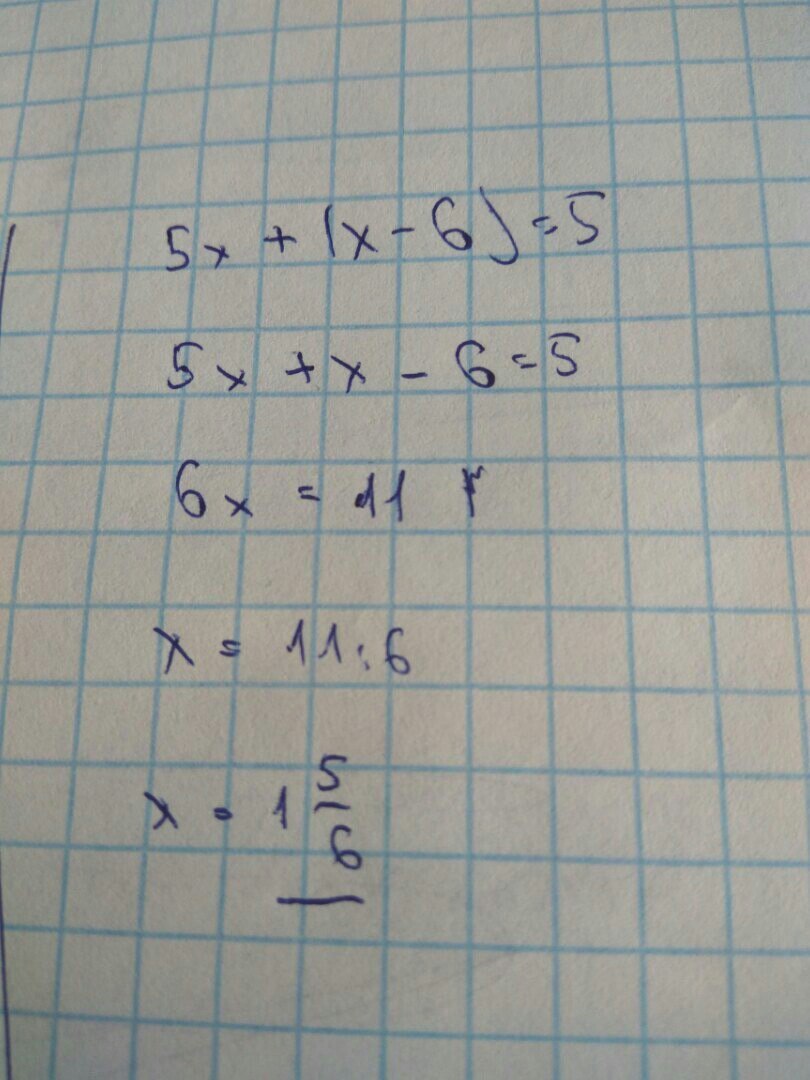 5x + (x - 6) = 5
5x + x - 6 = 5
6x = 11
x = 11:6
x = 1 5/6